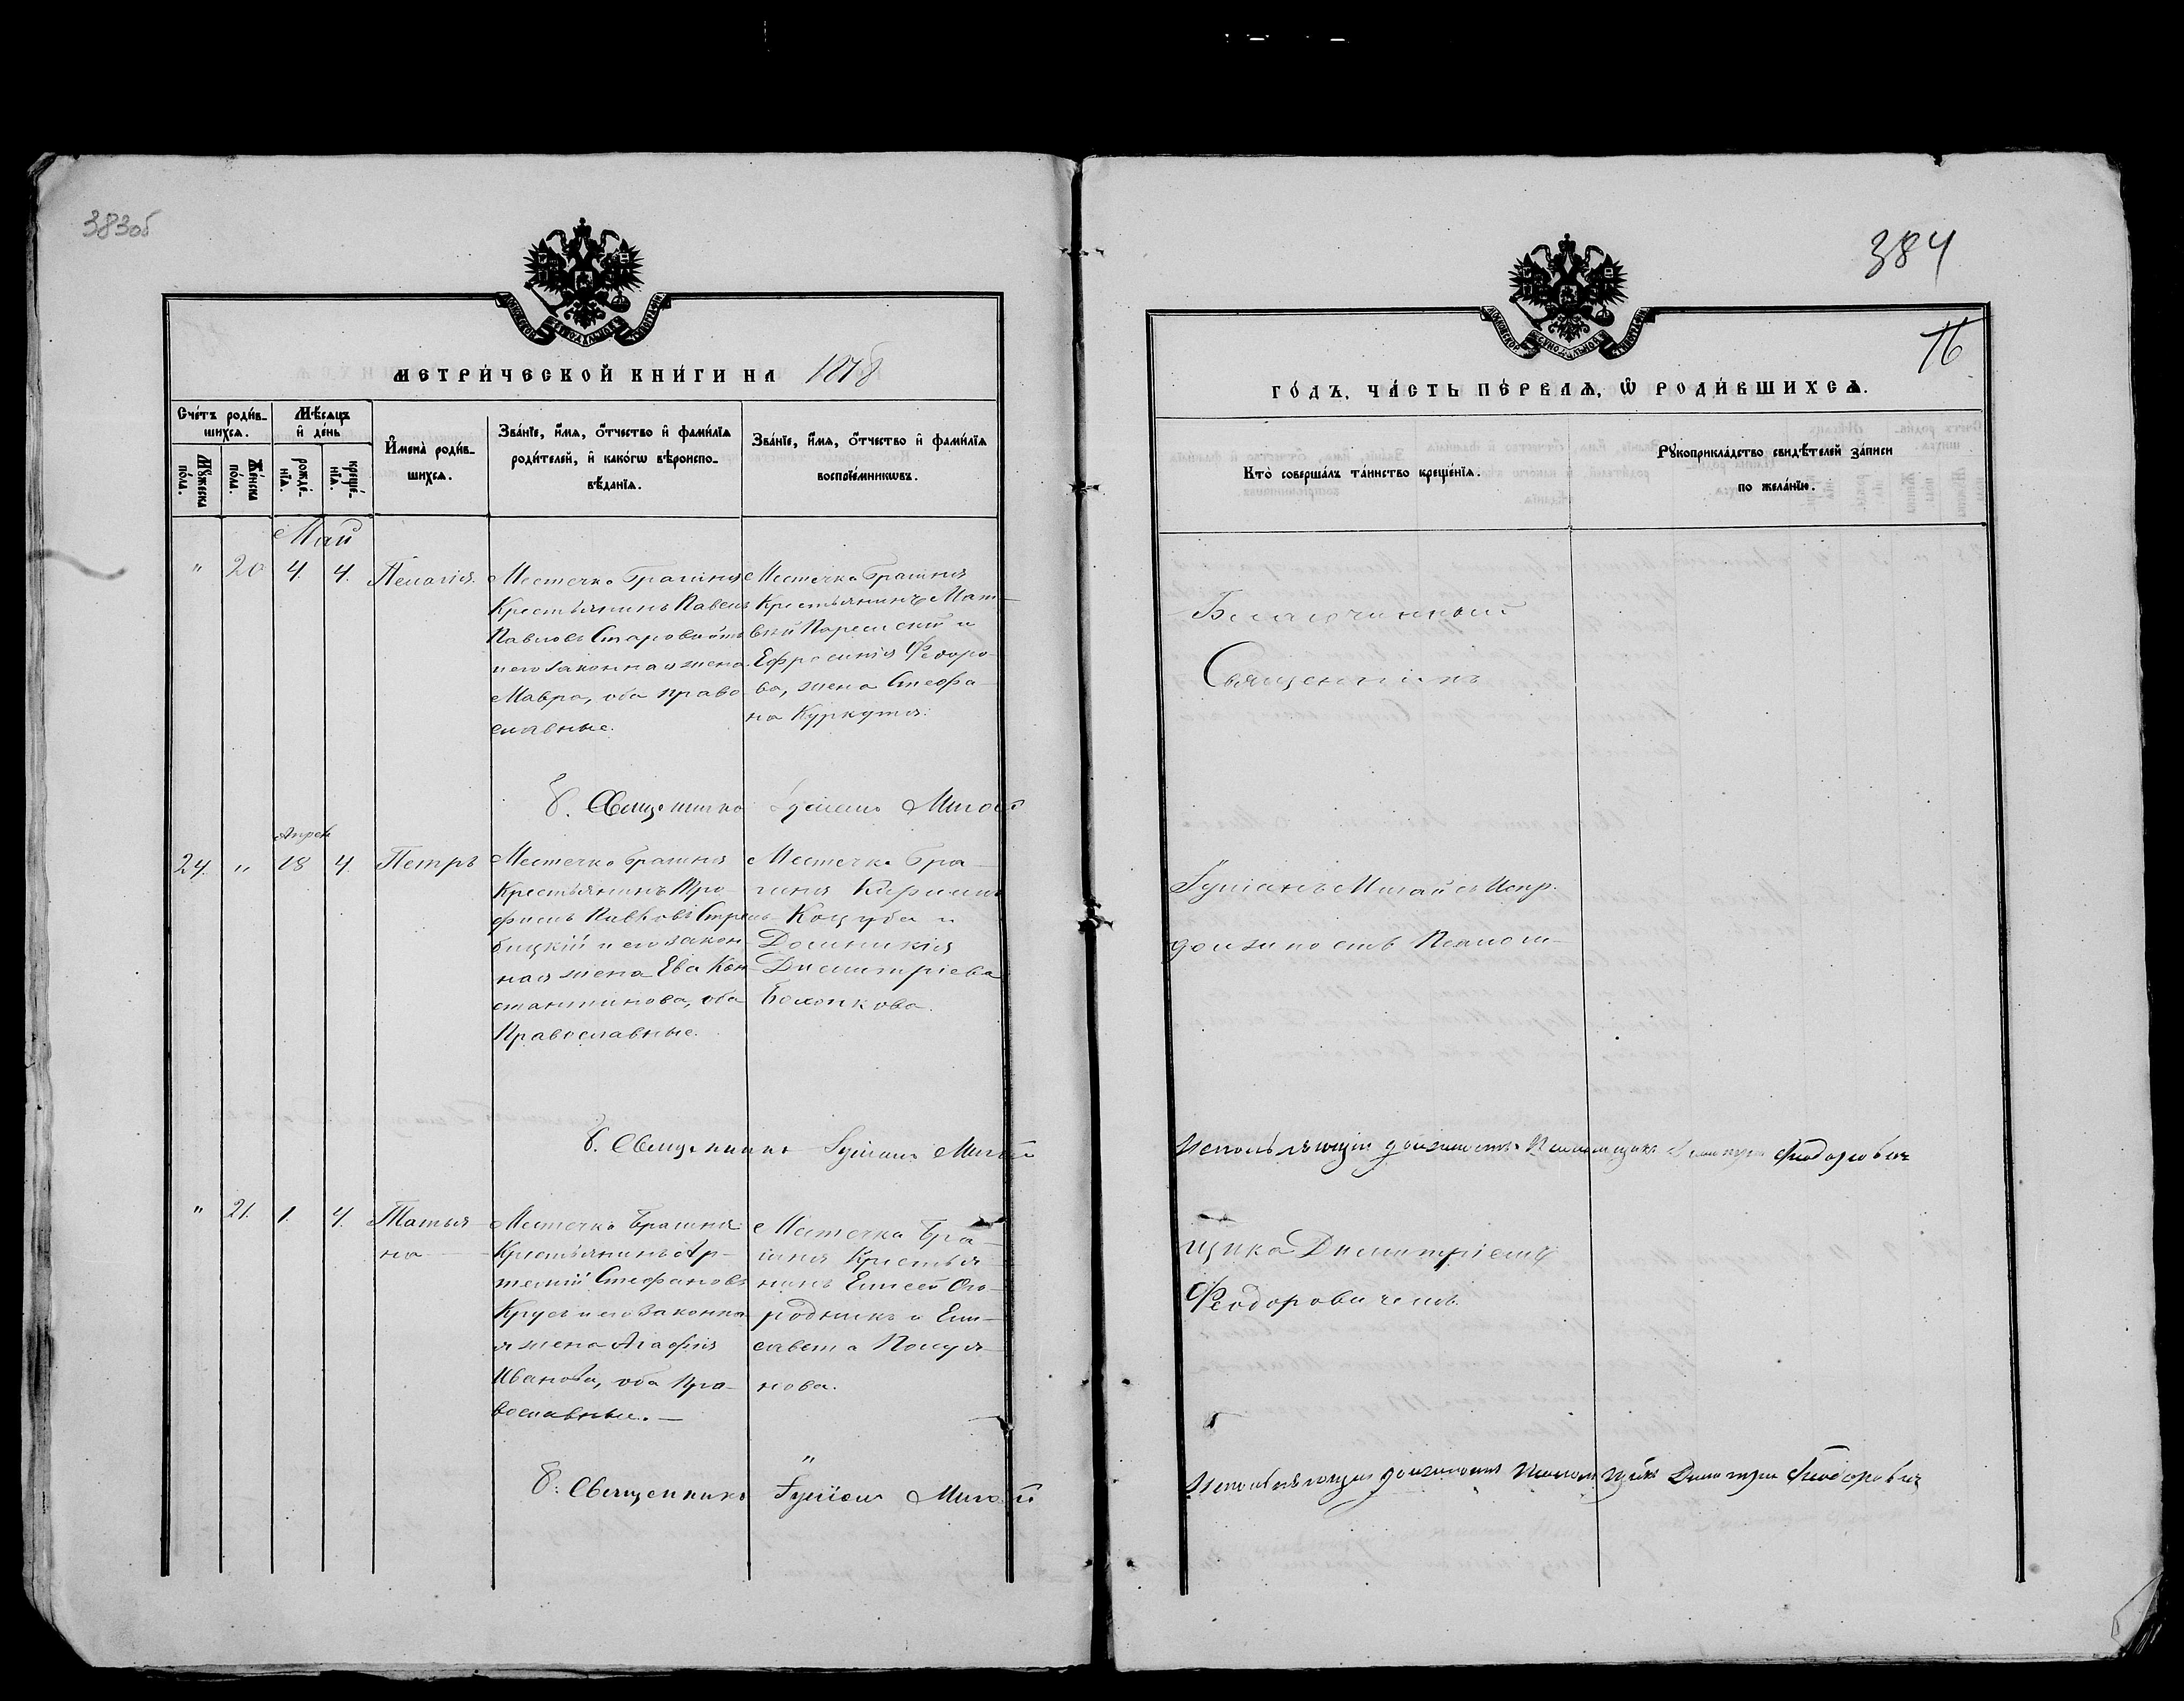 383об
МЕТРИ́ЧЕСКОЙ КНИ́ГИ НА 1878
Сче́тъ роди́в-
шихсѧ.
Мѣсѧцъ
и҆ де́нь
Мꙋ́жеска
по́ла.
Же́нска
по́ла.
рожде́-
нїѧ.
креще́-
нїѧ.
И҆мена̀ роди́в-
шихсѧ.
Зва́нїе, и҆́мѧ, о҆́тчество и҆ фами́лїѧ
роди́телей, и҆ како́гѡ вѣроиспо-
вѣ́данїѧ.
Зва́нїе, и҆́мѧ, о҆́тчество и҆ фами́лїѧ
воспрїе́мникѡвъ.
Май
" 20 4. 4. Пелагія.
Местечка Брагиня
Крестьянинъ Павелъ
Павловъ
и его законная жена
Мавра, оба право-
славные.
Местечка Брагиня
Крестьянинъ Мат-
вій и
Ефросинія Феодоро-
ва, жена Стефа-
на Куркутя.
Священникъ Іуліанъ Мигай
Апрель
24. " 28 4. Петръ
Местечка Брагиня
Крестьянинъ Тро-
фимъ Павловъ Стрель-
бицкій и его закон-
ная жена Ева Кон-
стантинова, оба
Православные.
Местечка Бра-
гиня Кириллъ
Коцуба и
Доминикія
Димитріева
Болонкова.
Священникъ Іуліанъ Мигай
" 21. 1. 4. Татья-
на
Местечка Брагиня
Крестьянинъ Ар-
темій Стефановъ
Круглъ и его законна-
я жена Агафія
Иванова, оба Пра-
вославные.
Местечка Бра-
гиня Крестья-
нинъ Елисей Ого-
родникъ и Ели-
савета
нова.
"
Священникъ Іуліанъ Мигай
384
76
ГО́ДЪ, ЧА́СТЬ ПЕ́РВАѦ, Ѡ҆ РОДИ́ВШИХСѦ.
Кто̀ соверша́лъ та́инство креще́нїѧ.
Рꙋкоприкла́дство свидѣ́телей за́писи
по жела́нїю.
Благочинный
Священникъ
Іуліанъ Мигай съ Испр.
должность Псалом-
щика Димитріемъ
Феодоровичемъ.
Исполняющій должность Псаломщика Димитрій Феодоровичъ
Исполняющій должность Псаломщика Димитрій Феодоровичъ